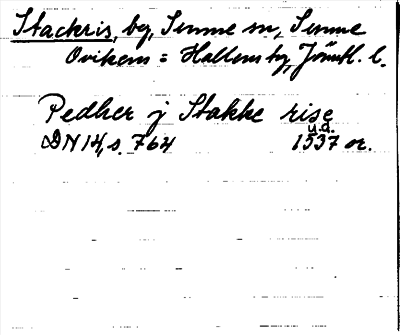 Stackris, by, Sunne sn, Sunne
Ovikens = Hallens tg, Jämtl. l.
Pedher j Stakke rise
u.d.
DN 14, s. 764 1537 or.